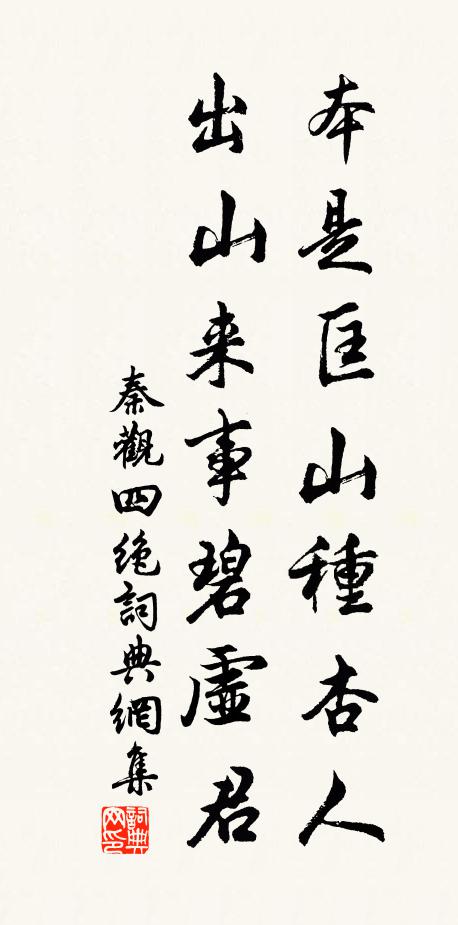 本是匡山種杏人
出山来事碧虛君
秦觀四絶詞典網集
詞典网印